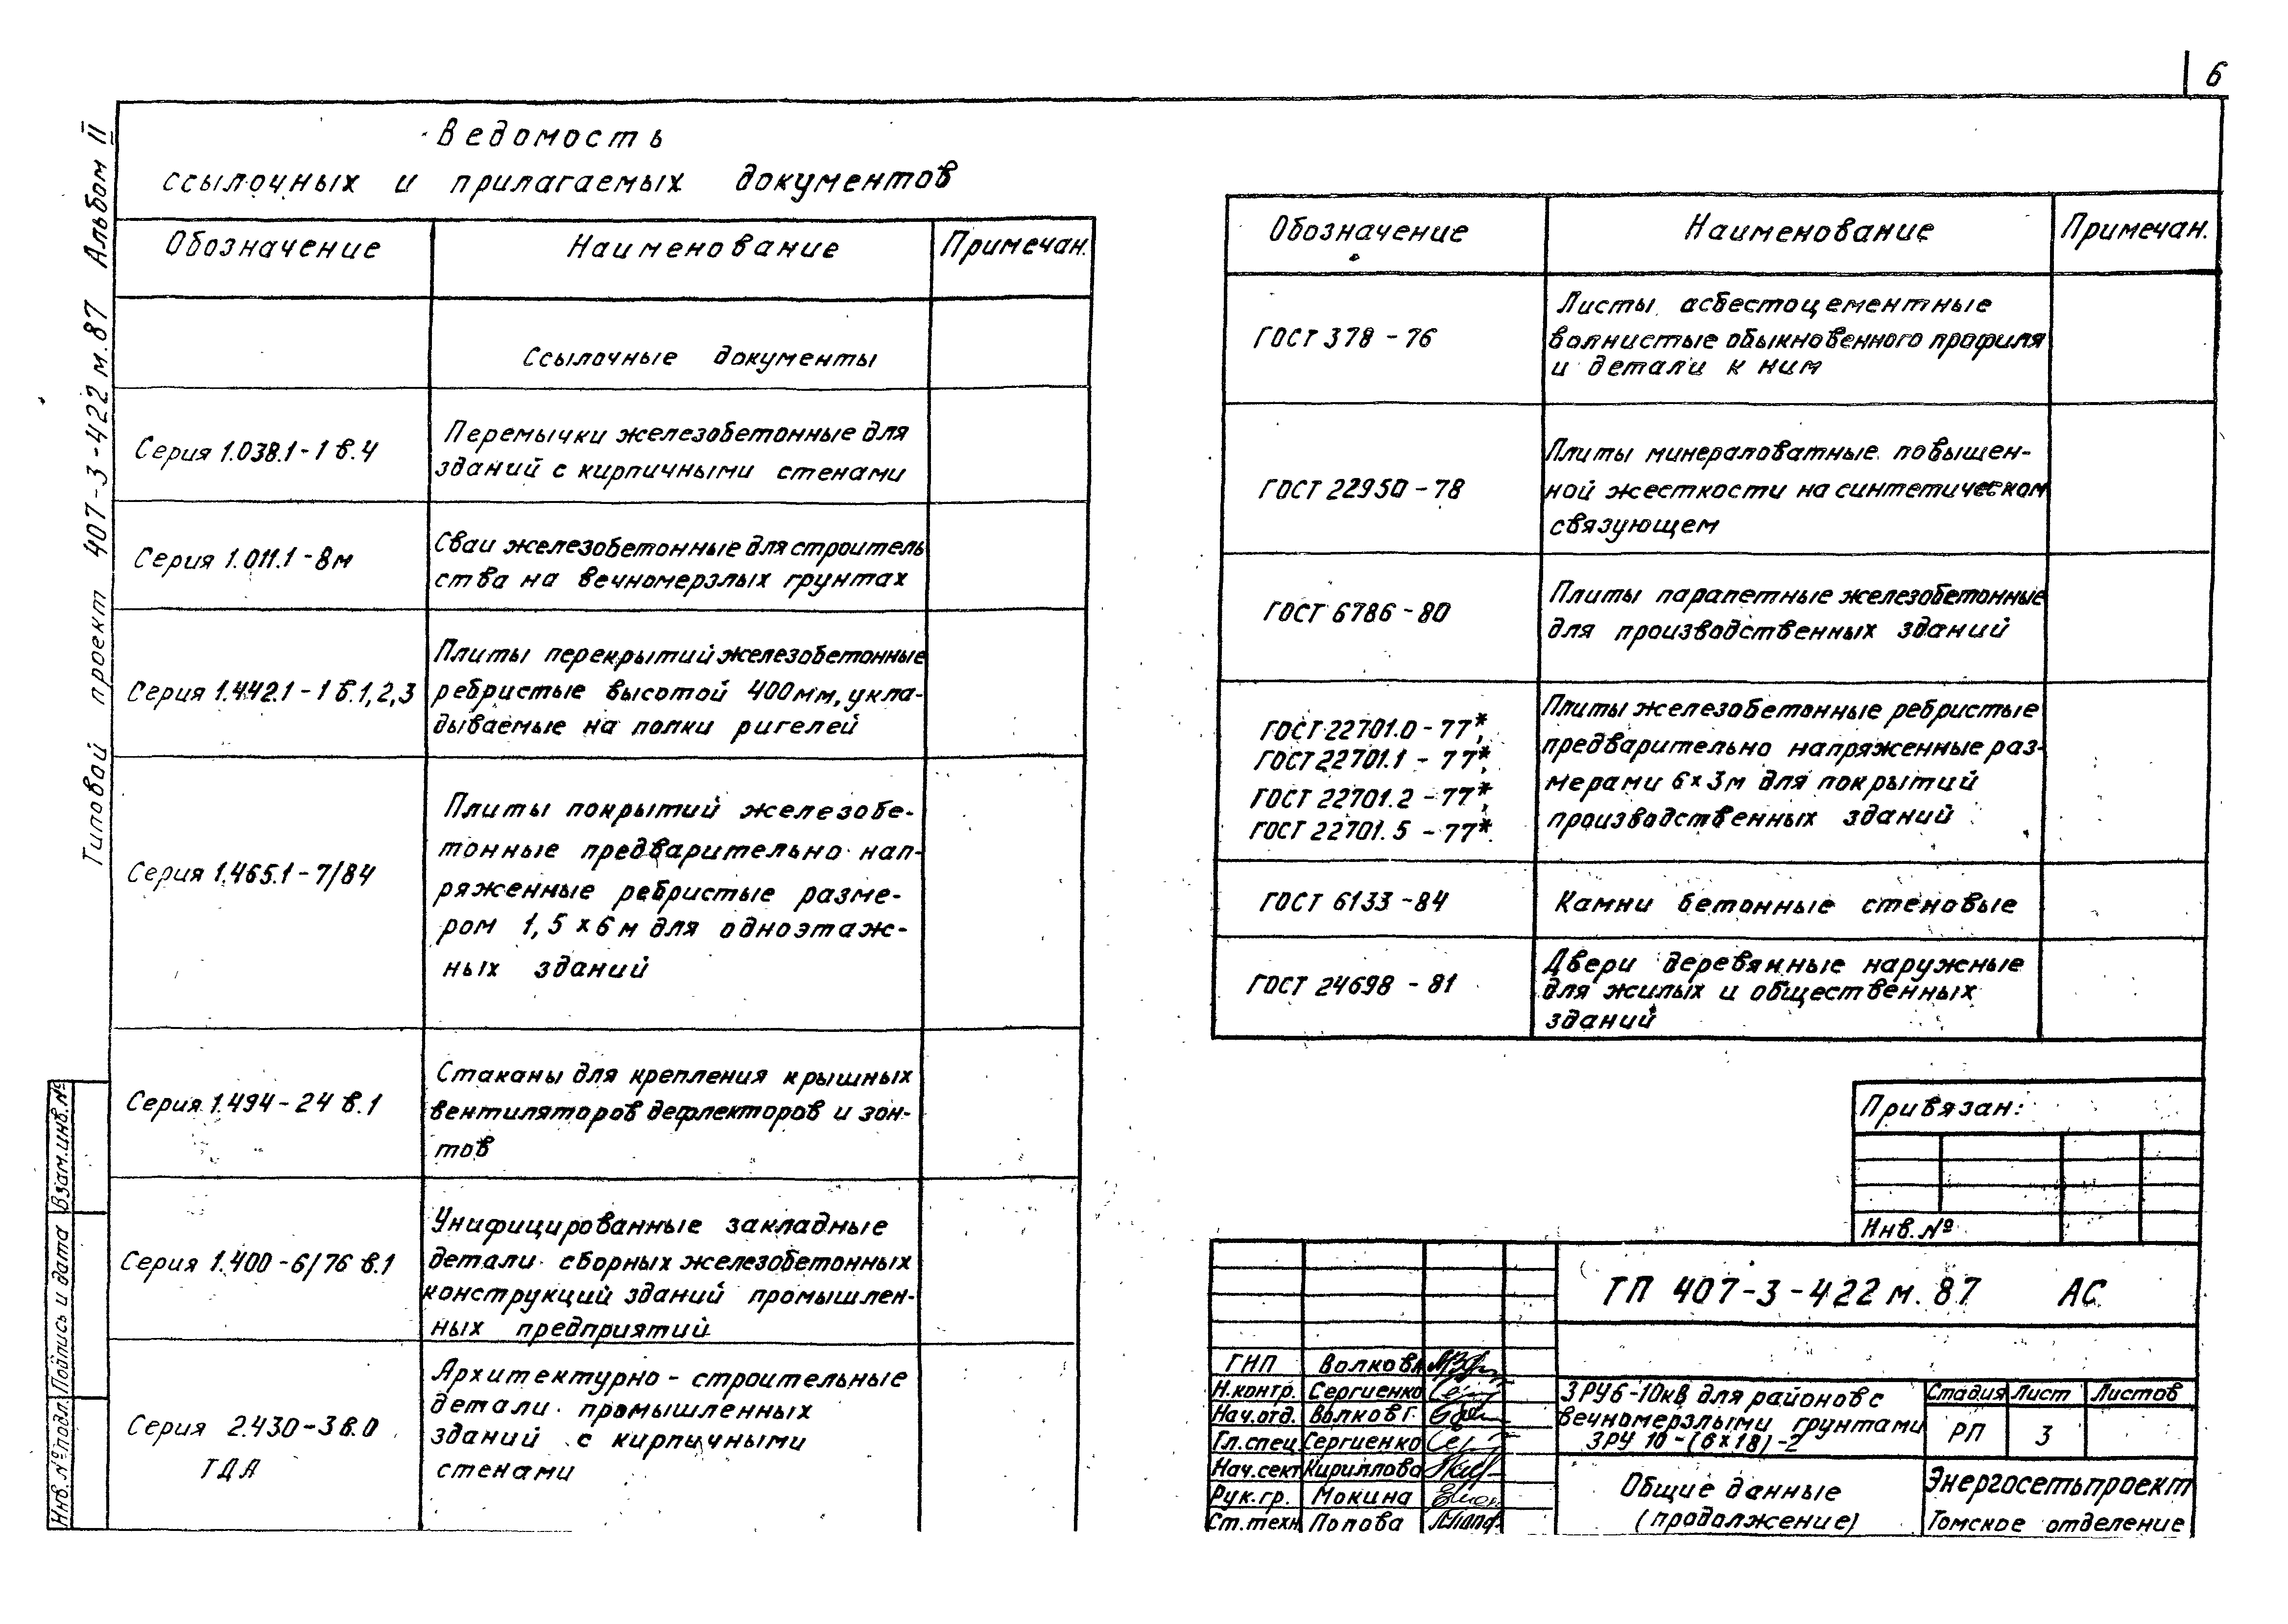 6
Типовой проект 407-3-422м.87 Альбом II
Ведомость
ссылочных и прилагаемых документов
Обозначение Наименование Примечан.
Ссылочные документы
Серия 1.038.1-1 в.4
Перемычки железобетонные для
зданий с кирпичными стенами
Серия 1.011.1-8м
Сваи железобетонные для строитель
ства на вечномерзлых грунтах
Серия 1.442.1-1 в.1,2,3
Плиты перекрытий железобетонные
ребристые высотой 400мм, укла-
дываемые на полки ригелей
Серия 1.465.1-7/84
Плиты покрытий железобе-
тонные предварительно нап-
ряженные ребристые разме-
ром 1,5х6м для одноэтаж-
ных зданий
Серия 1.494-24 в.1
Стаканы для крепления крышных
вентиляторов дефлекторов и зон-
тов
Серия 1.400-6/76 в.1
Унифицированные закладные
детали сборных железобетонных
конструкций зданий промышлен-
ных предприятий
Серия 2.430-3 в.0
ТДА
Архитектурно-строительные
детали промышленных
зданий с кирпичными
стенами
Обозначение Наименование Примечан.
ГОСТ 378-76
Листы асбестоцементные
волнистые обыкновенного профиля
и детали к ним
ГОСТ 22950-78
Плиты минераловатные повышен-
ной жесткости на синтетическом
связующем
ГОСТ 6786-80
Плиты парапетные железобетонные
для производственных зданий
ГОСТ 22701.0-77*,
ГОСТ 22701.1-77*,
ГОСТ 22701.2-77*,
ГОСТ 22701.5-77*.
Плиты железобетонные ребристые
предварительно напряженные раз-
мерами 6х3м для покрытий
производственных зданий
ГОСТ 6133-84
Камни бетонные стеновые
ГОСТ 24698-81
Двери деревянные наружные
для жилых и общественных
зданий
Привязан:
Инв.№
ТП 407-3-422м.87 АС
ГИП Волкова
Н.контр. Сергиенко
Нач.отд. Волков Г.
Гл.спец Сергиенко
Нач.сект Кириллова
Рук.гр. Мокина
Ст.техн Попова
ЗРУ6-10кВ для районов с
вечномерзлыми грунтами
ЗРУ 10-(6х18)-2
Стадия Лист Листов
РП 3
Общие данные
(продолжение)
Энергосетьпроект
Томское отделение
Инв.№подл. Подпись и дата Взам.инв.№